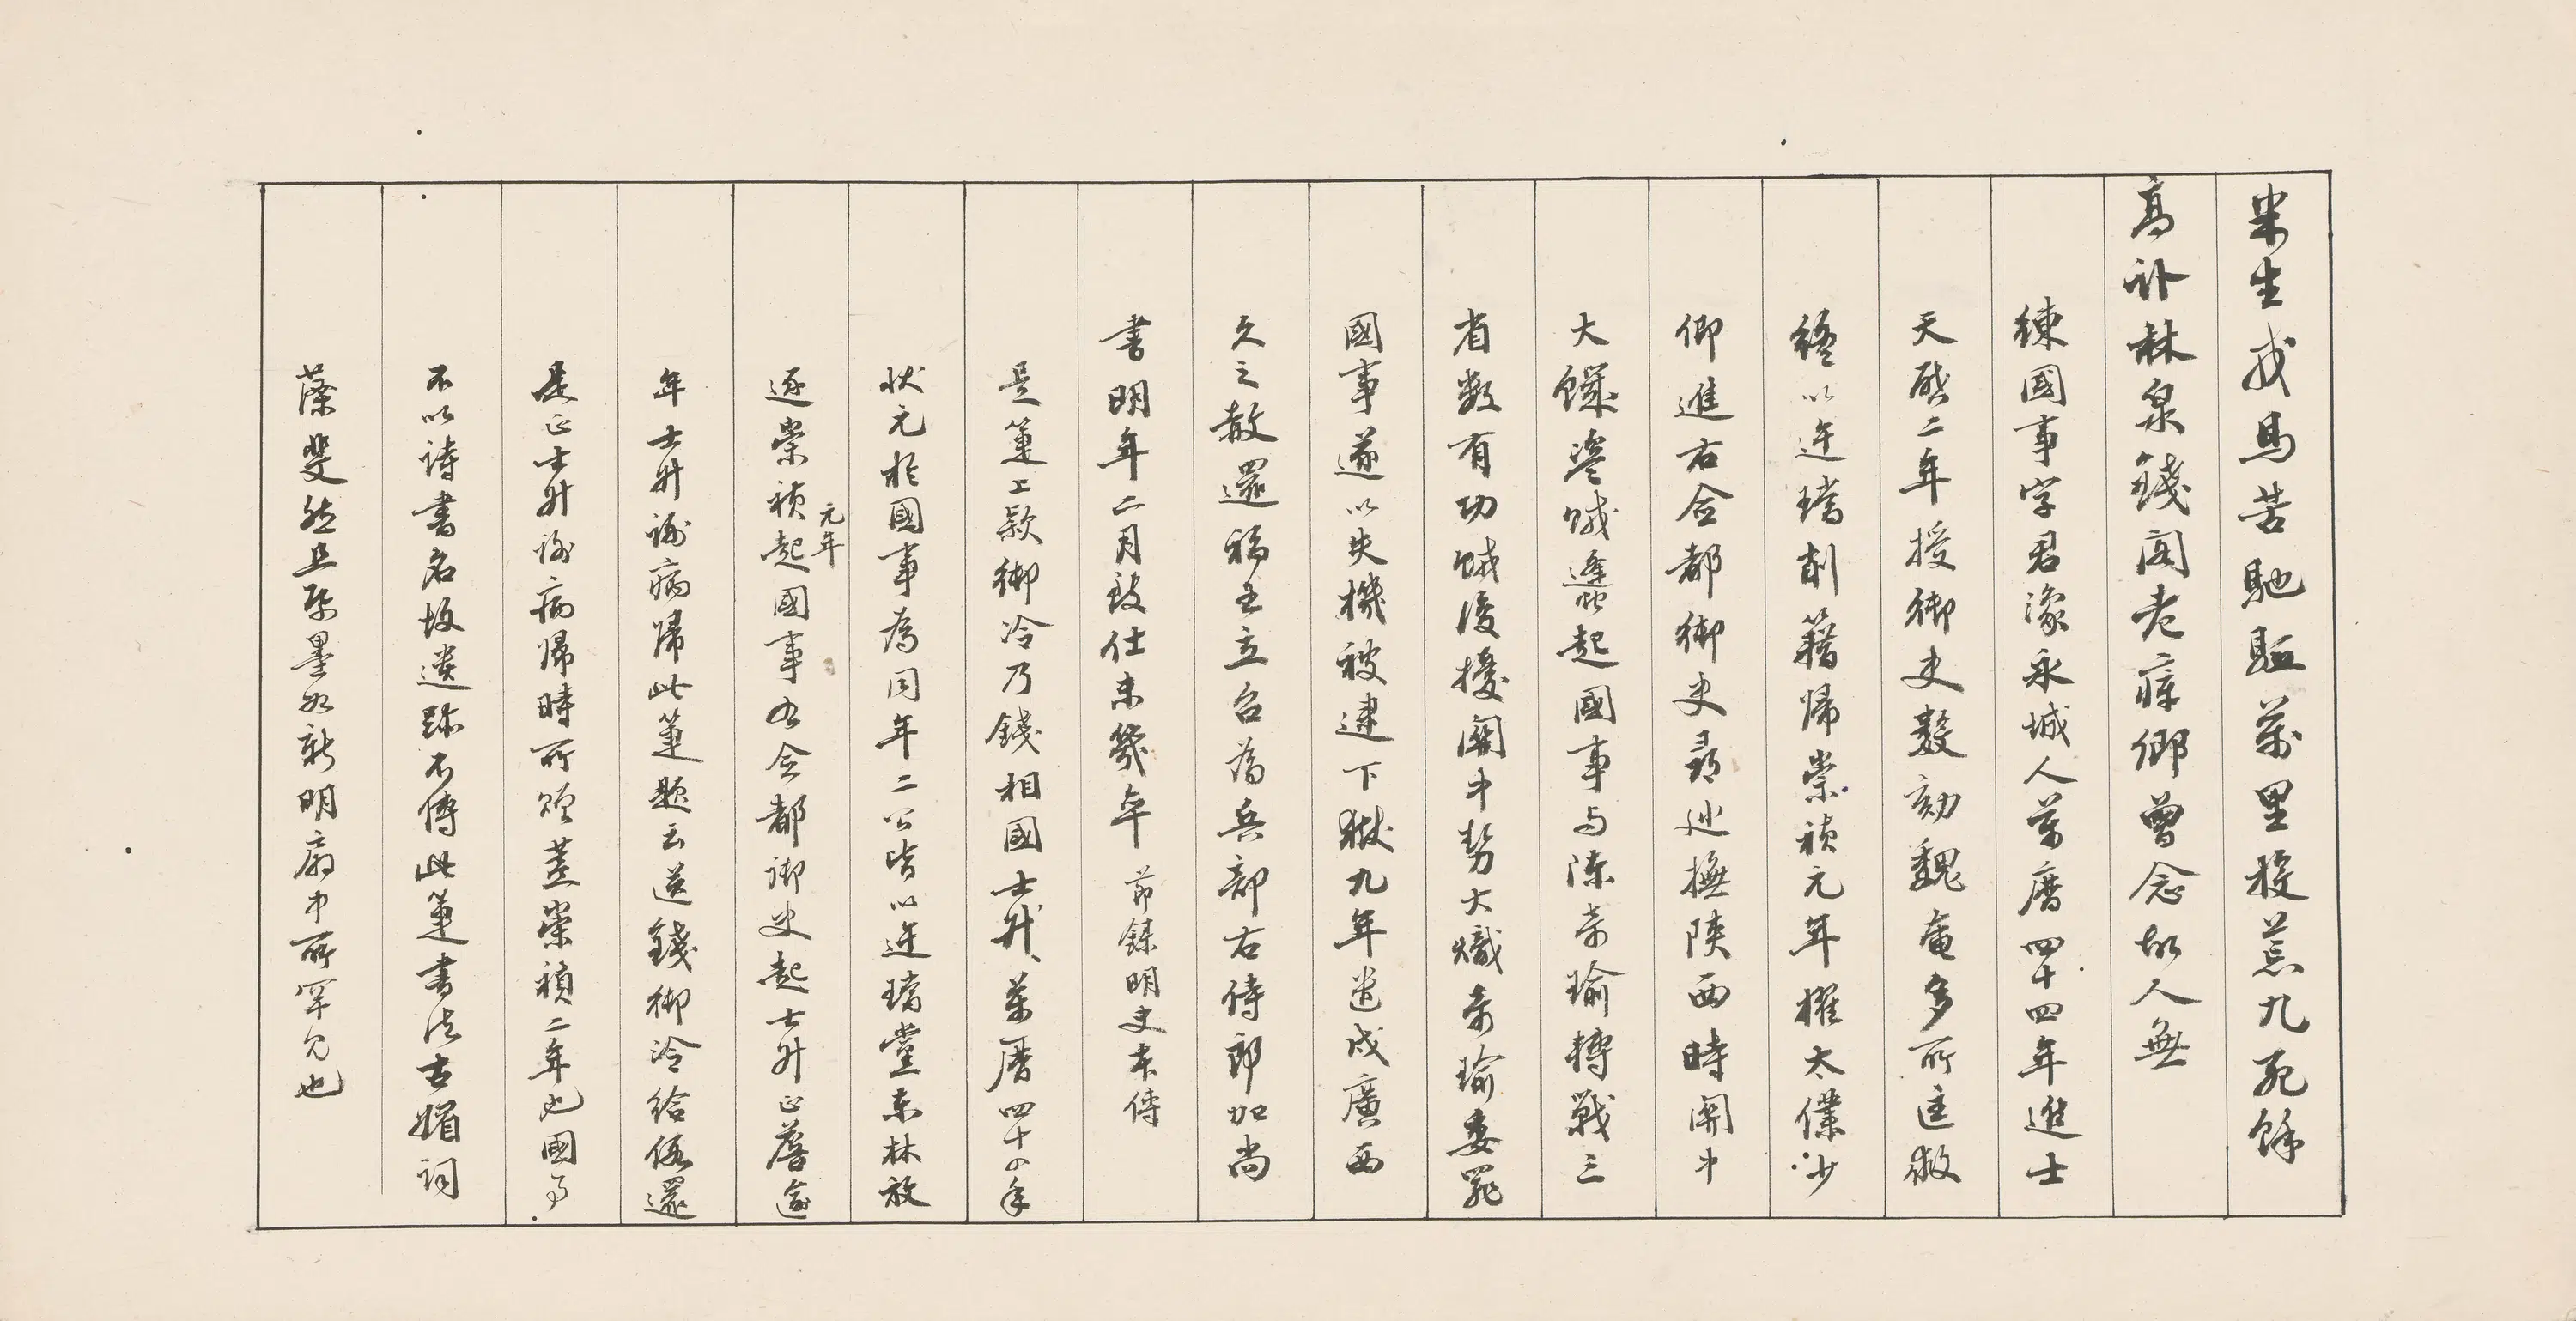 半生戎馬苦馳驅萬里投荒九死餘
高卧林泉錢閣老寐鄉曾念故人無
練國事字君豫永城人萬曆四十四年進士
天啟二年授御史數劾魏奄多所匡救
終以迕璫削籍歸崇禎元年擢太僕少
卿進右僉都御史尋巡撫陝西時關中
大饑盜賊蠭起國事与陳奇瑜轉戰三
省数有功賊復擾關中勢大熾奇瑜委罪
國事遂以失機被逮下獄九年遣戍廣西
久之赦還福王立召為兵部右侍郎加尚
書明年二月致仕未幾卒 節錄明史本傳
是箑上款御冷乃錢相國士升萬曆四十四年
狀元於國事為同年二公皆以迕璫黨東林放
逐崇禎元年起國事右僉都御史起士升正詹逾
年士升謝病歸此箑題云送錢御冷給假還
是正士升謝病歸時所贈蓋崇禎二年也國事
不以詩書名故遺跡不傳此箑書法古媚詞
藻斐然且琴墨如新明扇中所罕見也